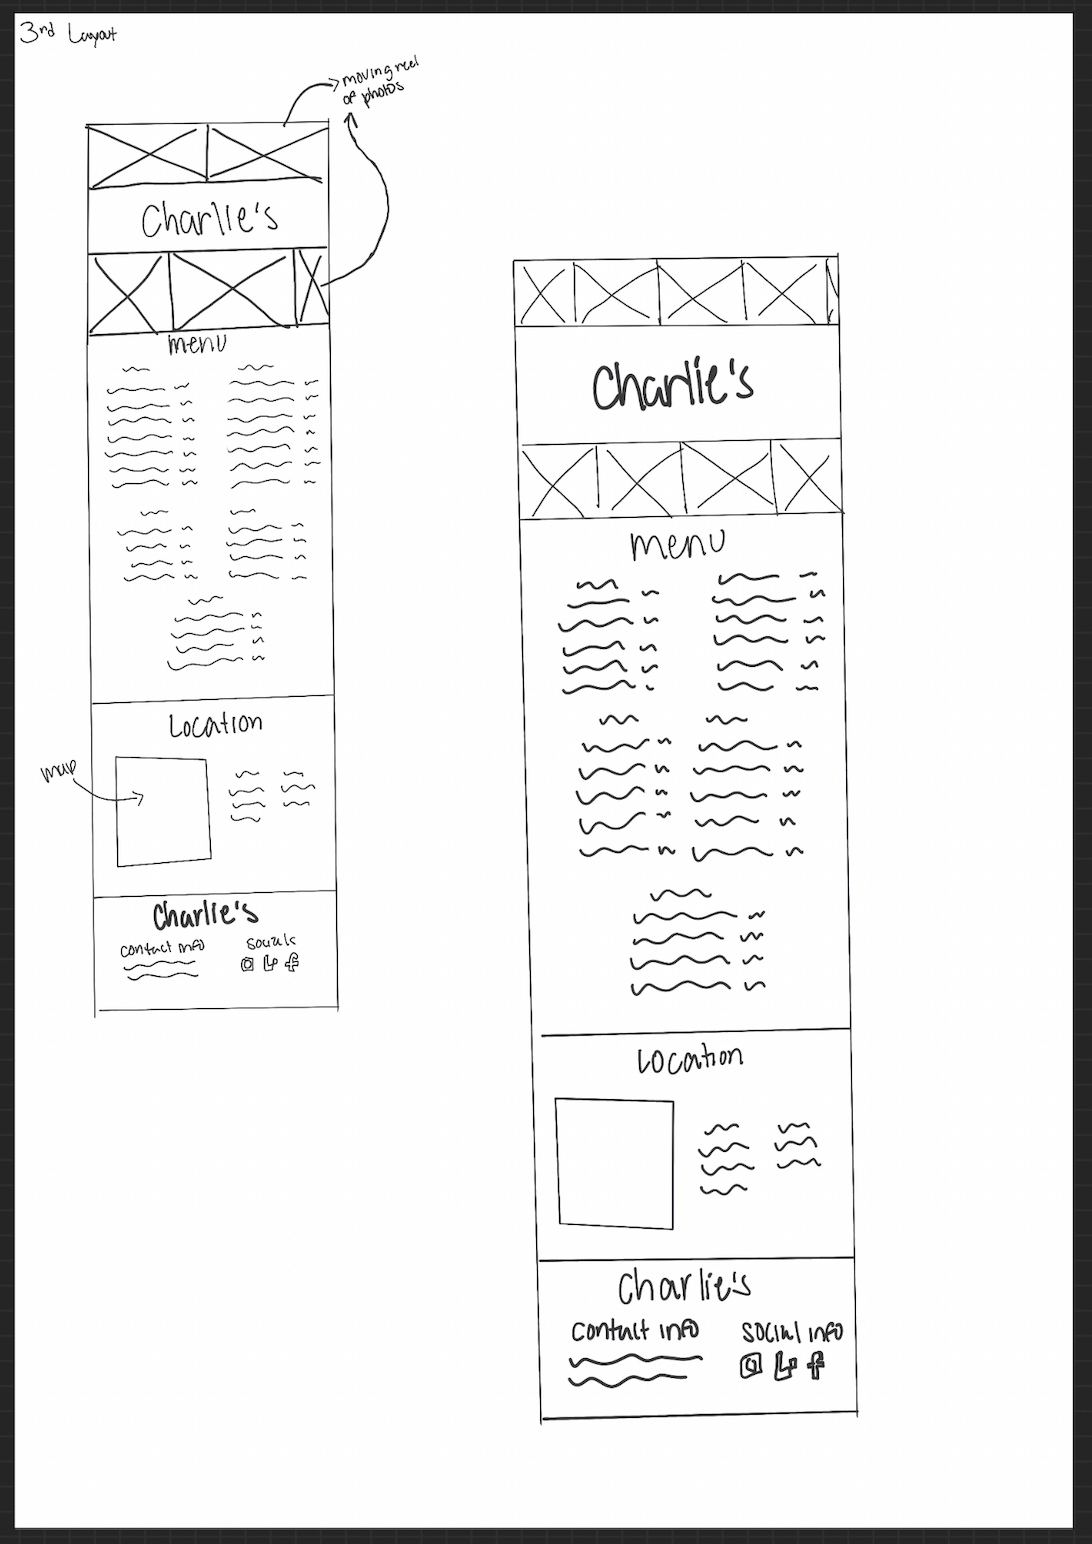 3rd Layout
moving reel
of photos
Charlie's
menu
Location
map
Charlie's
contact info
socials
Charlie's
menu
Location
Charlie's
contact info
social info